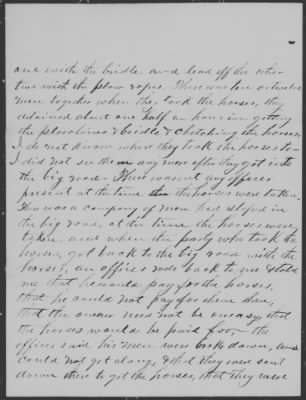 one with the bridle and lead off the other
two with the plow ropes. There was ten or twelve
men together when they took the horses, they
detained about one half an hour in getting
the plowlines & bridle & catching the horses,
I do not know where they took the horses to
I did not see them any more after they got into
the big road - There wasent any officer
present at the time the horses were taken.
There was a company of men had stoped in
the big road, at the time the horses were
taken, and when the party who took the
horses, got back to the big road with the
horses, an officer rode back to me & told
me that he would pay for the horses,
that he could not pay for them then,
that the owner need not be oneasy that
the horses would be paid for, the
officer said his men were broke down, and
could not get along, & that they were sent
down there to get the horses, that they were